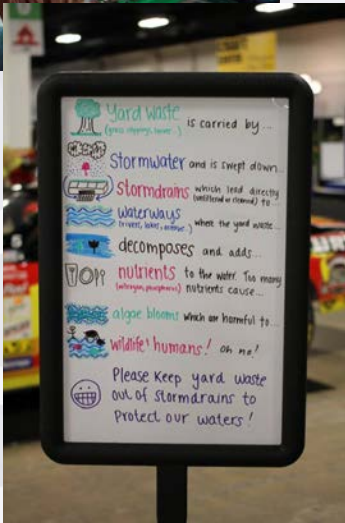 Yard waste
(grass clippings, leaves...) is carried by...
Stormwater and is swept down...
Stormdrains which lead directly
(unfiltered or cleaned) to...
waterways
(rivers, lakes, oceans...) where the yard waste...
decomposes and adds...
nutrients to the water. Too many
(nitrogen, phosphorus) nutrients cause...
algae blooms which are harmful to...
wildlife & humans! oh no!
Please Keep yard waste
out of stormdrains to
Protect our waters!